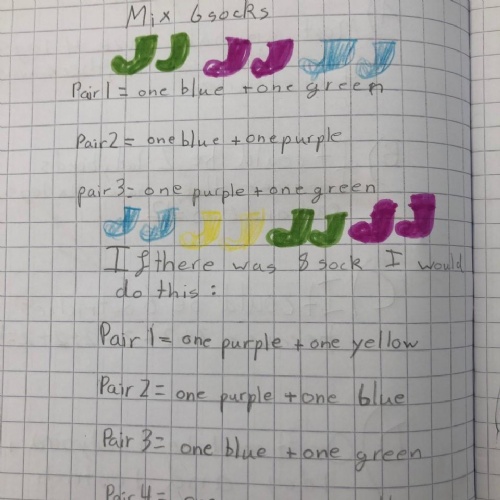 Mix 6 socks
Pair 1 = one blue + one green
Pair 2 = one blue + one purple
pair 3 = one purple + one green
If there was 8 sock I would
do this :
Pair 1 = one purple + one yellow
Pair 2 = one purple + one blue
Pair 3 = one blue + one green
Pair 4 =